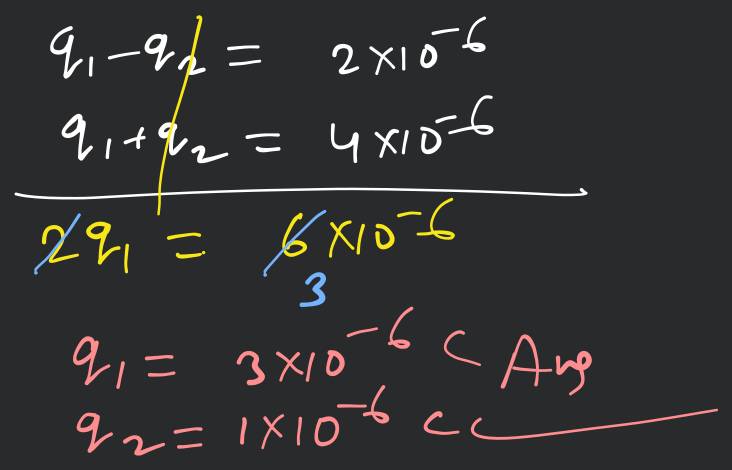 q₁-q₂ = 2×10⁻⁶
q₁+q₂ = 4×10⁻⁶
2q₁ = 6×10⁻⁶
3
q₁ = 3×10⁻⁶ C Ans
q₂ = 1×10⁻⁶ C